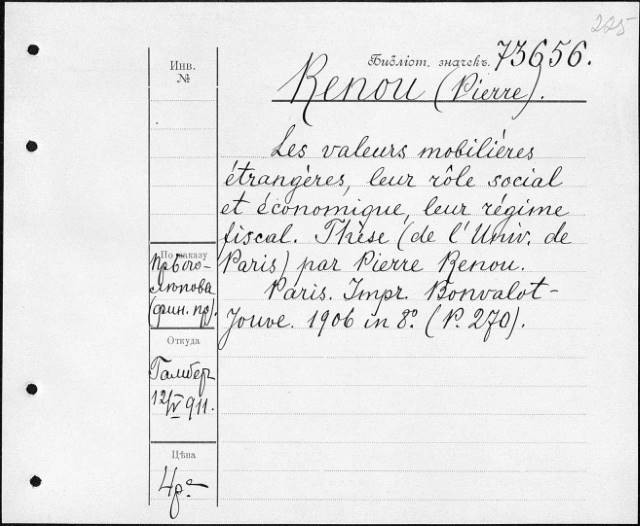 225
Библіот. значекъ. 73656.
Инв.
№
Renou (Pierre).
Les valeurs mobilières
étrangères, leur rôle social
et économique, leur régime
fiscal. Thèse (de l'Univ. de
Paris) par Pierre Renou.
Paris. Impr. Bonvalot-
Jouve. 1906 in 8º. (P. 270).
По заказу
(фин. пр).
Откуда
Гамбер
12/IV 911.
Цѣна
4р.